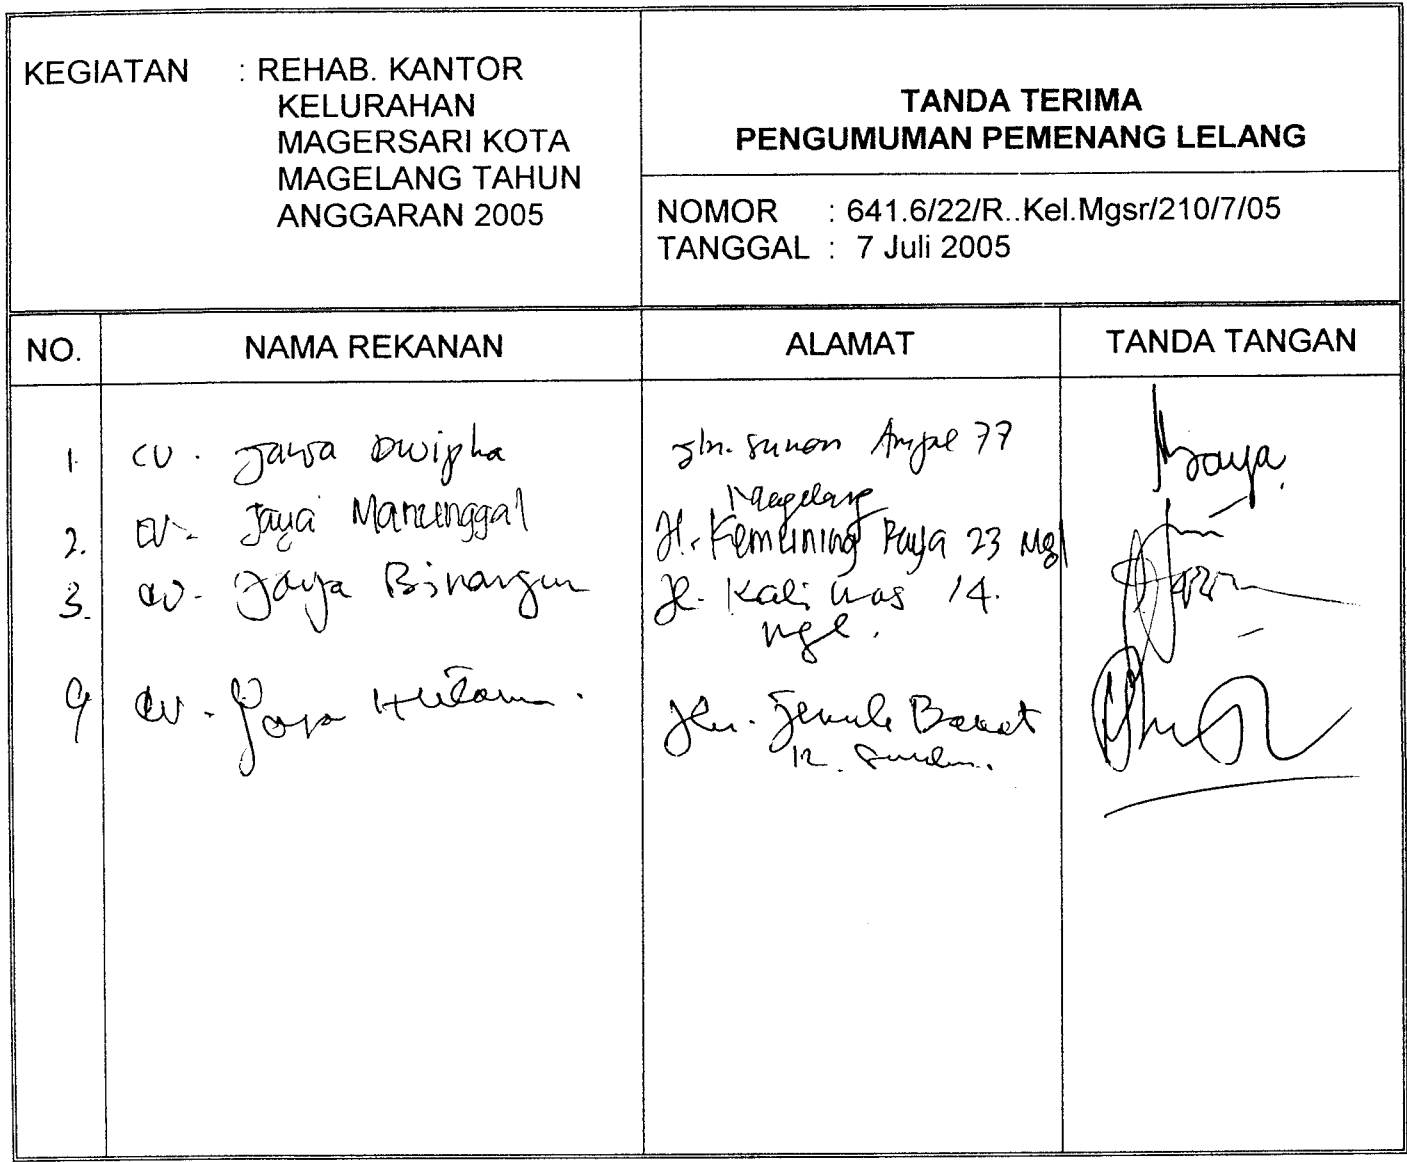 KEGIATAN : REHAB. KANTOR
KELURAHAN
MAGERSARI KOTA
MAGELANG TAHUN
ANGGARAN 2005
TANDA TERIMA
PENGUMUMAN PEMENANG LELANG
NOMOR : 641.6/22/R..Kel.Mgsr/210/7/05
TANGGAL : 7 Juli 2005
NO. NAMA REKANAN ALAMAT TANDA TANGAN
1. CV. Jawa Dwipha Jln. Sunan Ampel 77
Magelang
2. CV. Jaya Manunggal Jl. Kemuning Raya 23 Mgl
3. CV. Jaya Binangun Jl. Kali 14.
Mgl.
4 CV. Hutama. Jln. Barat
12.